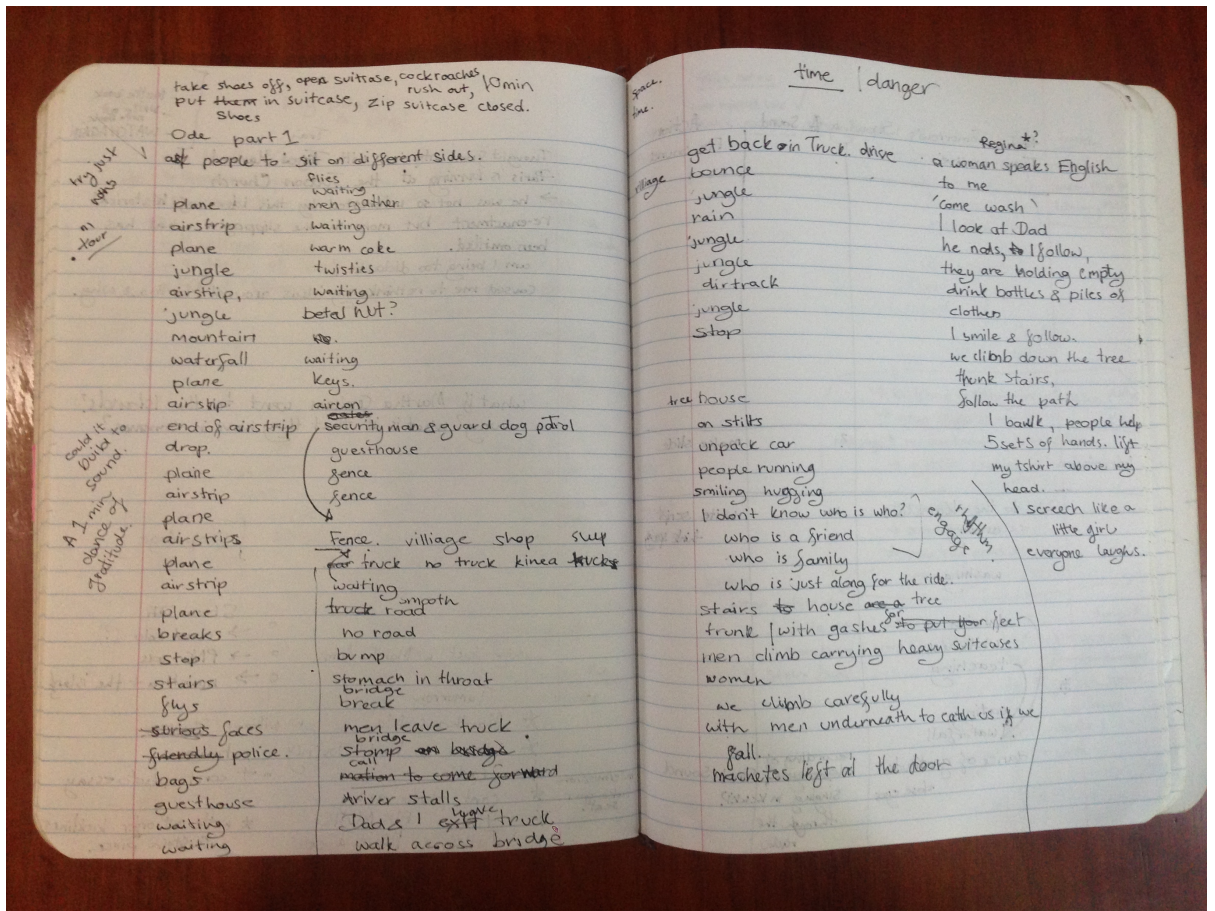 take shoes off, open suitcase, cockroaches rush out, 10min
put them in suitcase, zip suitcase closed.
Shoes
Ode part 1
ask people to sit on different sides.
try just nouns
n)
. tour
could it build to sound.
A 1 min dance of gratitude.
plane
airstrip
plane
jungle
airstrip,
jungle
mountain
waterfall
plane
airstrip
end of airstrip
drop.
plane
airstrip
plane
airstrips
plane
airstrip
plane
breaks
stop
stairs
flys
serious faces
friendly police.
bags
guesthouse
waiting
waiting
flies
waiting
men gather
waiting
warm coke
twisties
waiting
betel nut?
waiting
keys.
aircon
security man & guard dog patrol
guesthouse
fence
fence
Fence. villiage shop
truck no truck kinea trucks
waiting
smooth
truck road
no road
bump
stomach in throat
bridge
break
men leave truck
bridge
stomp on bridge
call
motion to come forward
driver stalls
leave
Dad & I exit truck
walk across bridge
space.
time.
time / danger
village
get back in Truck. drive
bounce
jungle
rain
jungle
jungle
dirtrack
jungle
stop
tree house
on stilts
unpack car
people running
smiling hugging
I don't know who is who?
who is a friend
who is family
who is just along for the ride.
rhythm
engage
stairs to house are a tree
for
trunk / with gashes to put your feet
men climb carrying heavy suitcases
women
we climb carefully
with men underneath to catch us if we
fall.
machetes left at the door
Regina*?
a woman speaks English
to me
'come wash'
I look at Dad
he nods, to I follow,
they are holding empty
drink bottles & piles of
clothes
I smile & follow.
we climb down the tree
thunk stairs,
follow the path
I baulk, people help
5 sets of hands. lift
my tshirt above my
head.
I screech like a
little girl
everyone laughs.